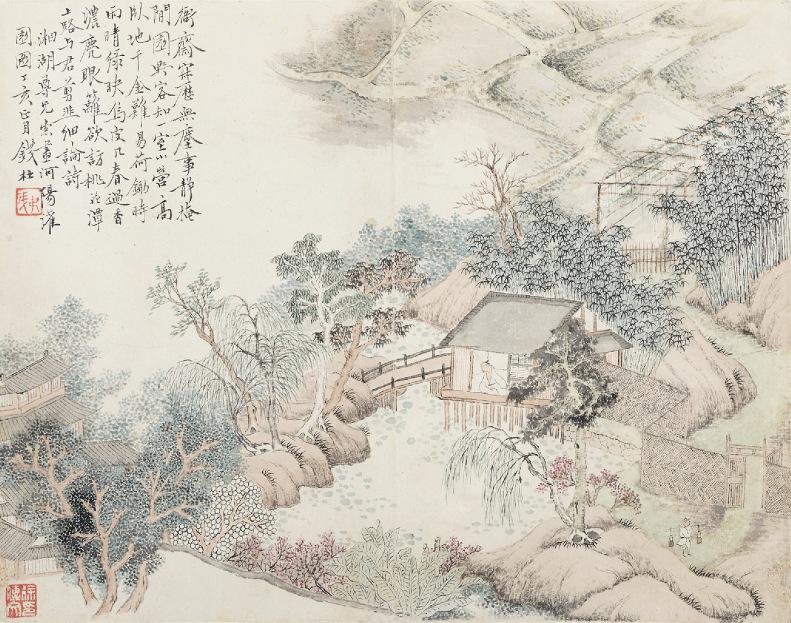 衙齋寂歷無塵事静掩
閒園與客知室小營高
臥地千金難易荷鋤時
雨晴緑映烏皮几春過香
濃麂眼籬欲訪桃花潭
上路与君剪韭細論詩
湘湖尊兄索畫河陽灌
園圖丁亥正月錢杜